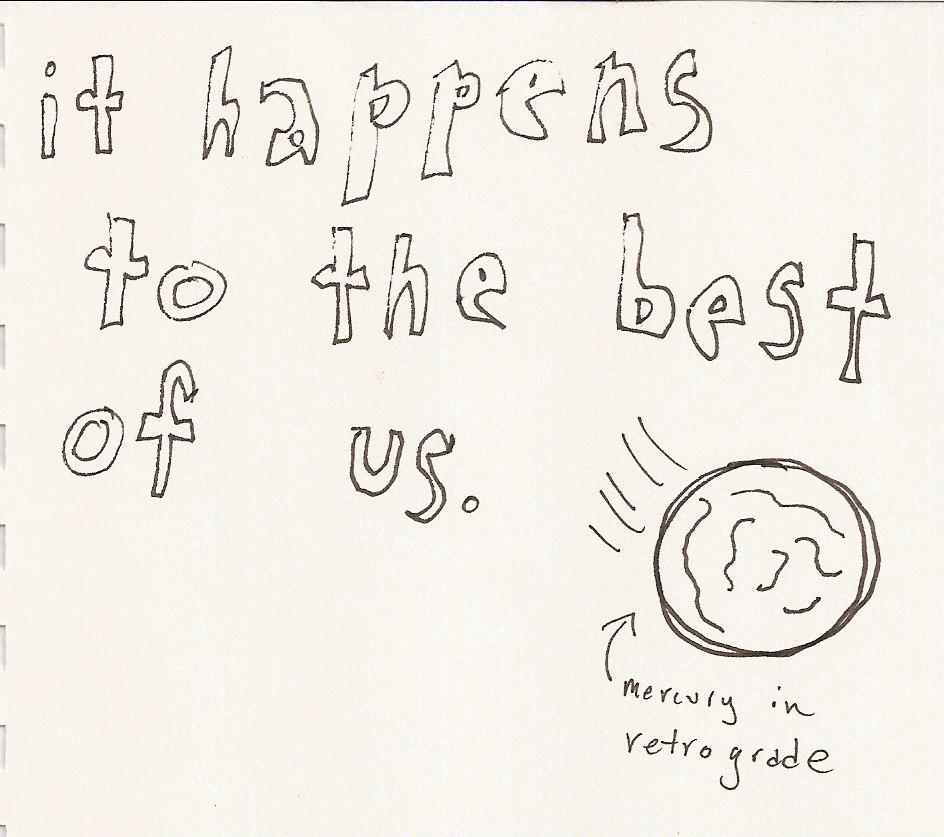 it happens
to the best
of us.
mercury in
retrograde